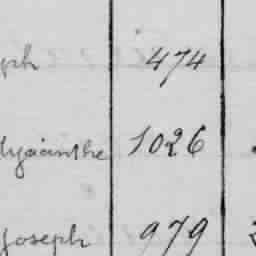 ph 474
Hyacinthe 1026
Joseph 979